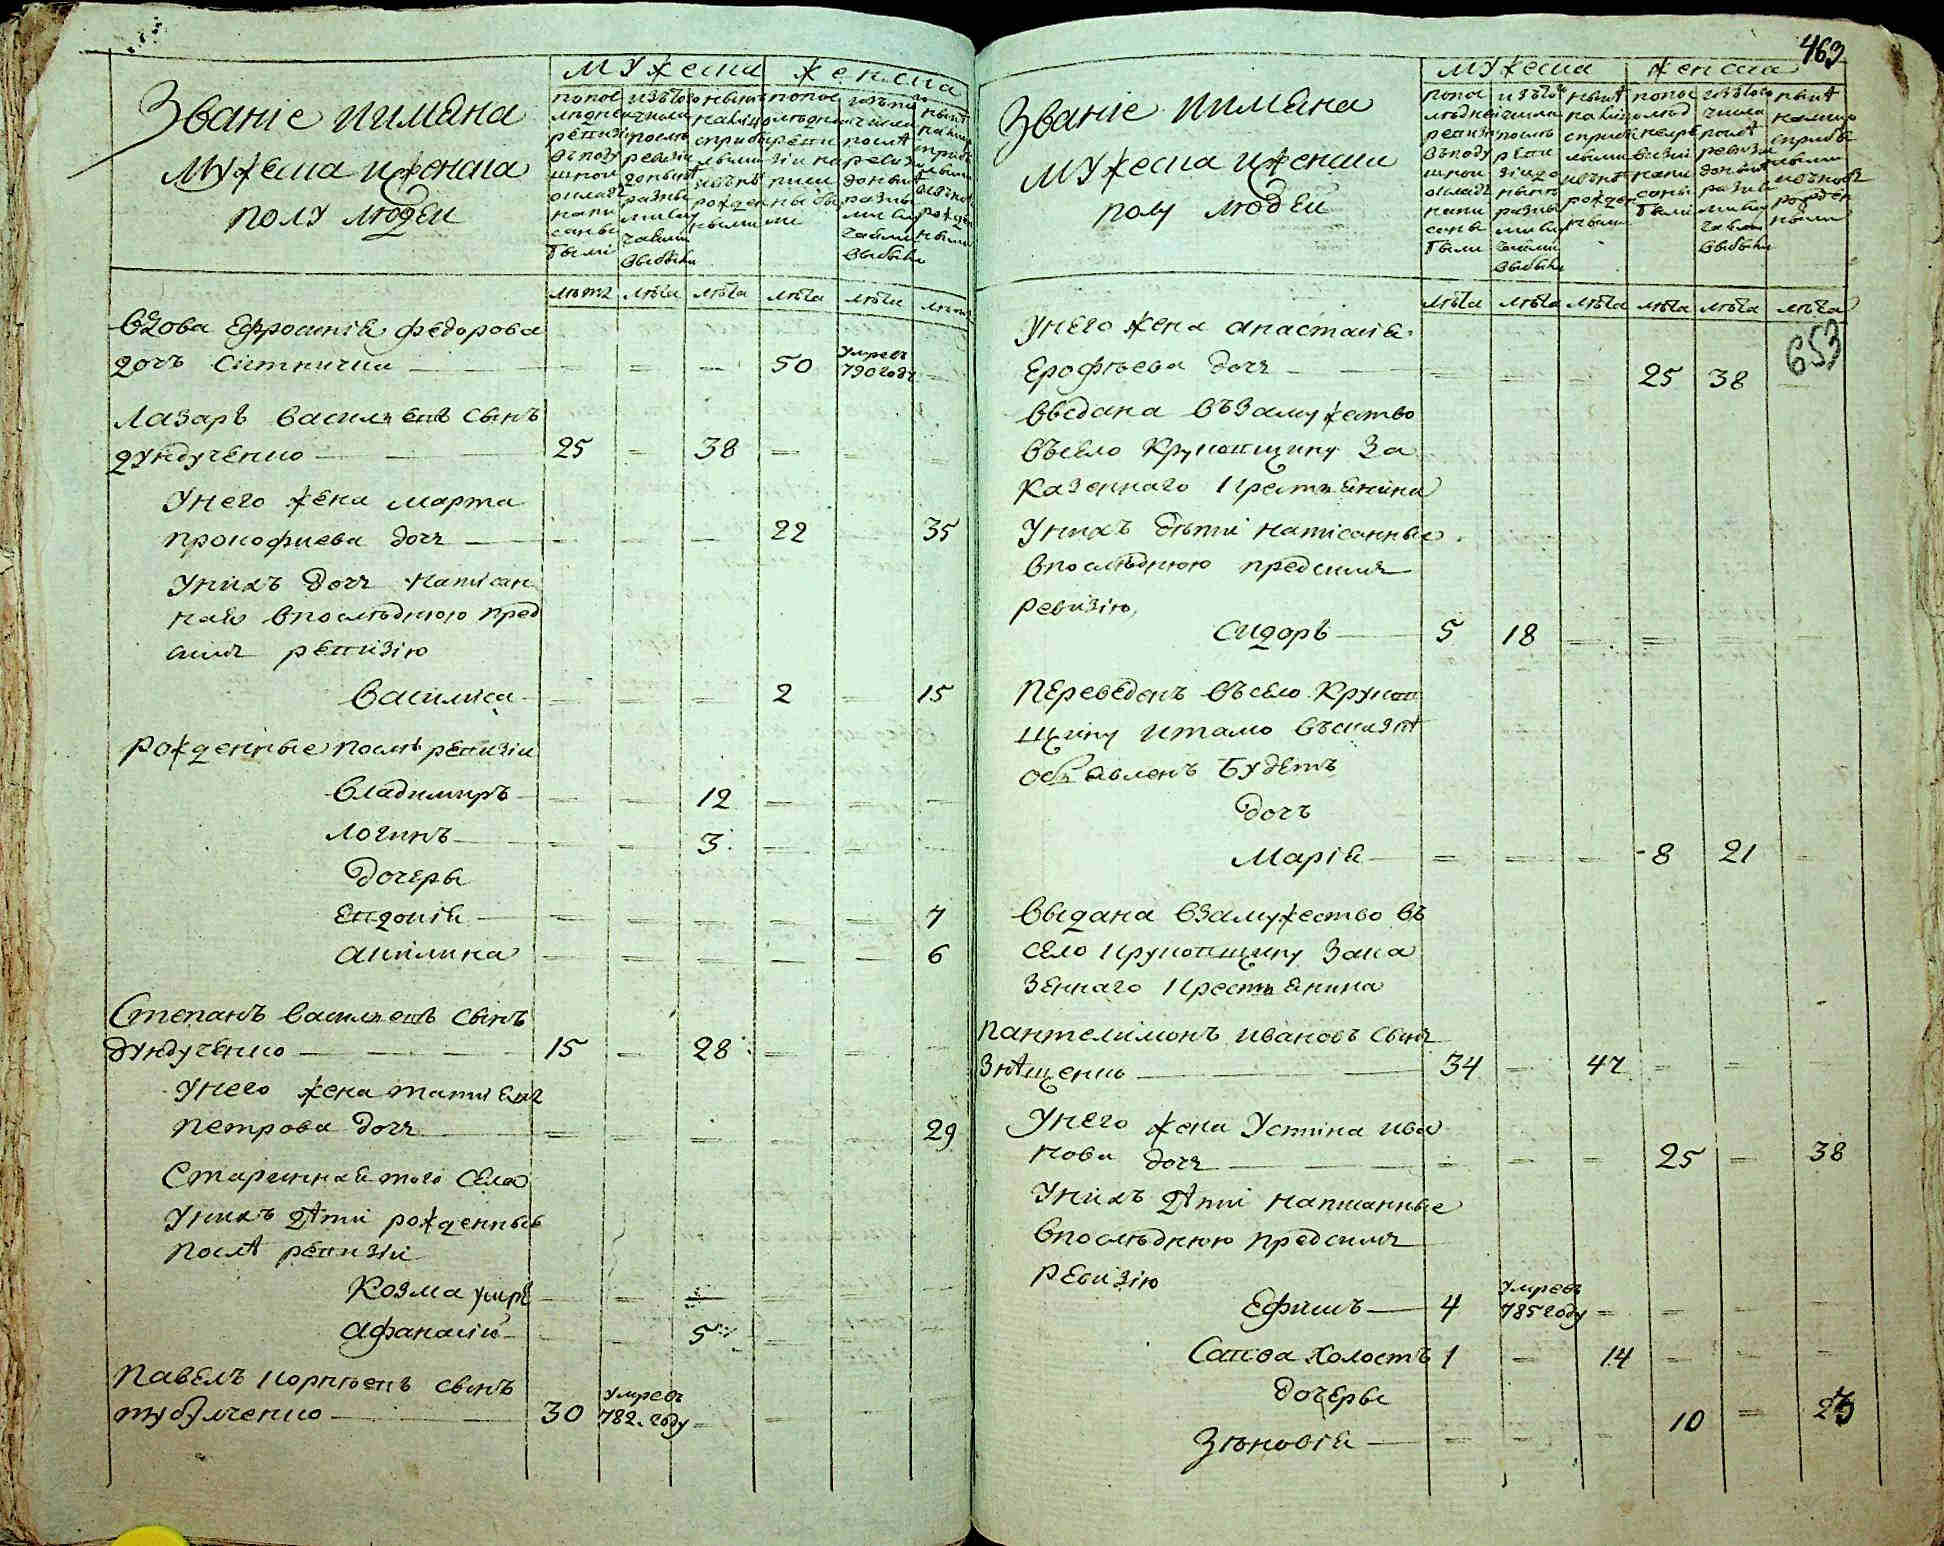 Званіе иимѧна
мужеска иженска
полу людей
мужеска
женска
попос
лѣдней
ревизіи
въподу
шной
окладъ
напи
саны
были
изътого
числа
послѣ
ревизіи
доныне
разны
ми слу
чаями
выбыли
нынѣ
налицо
сприбы
лыми
ивновь
рожден
ными
лѣтъ лѣта лѣта лѣта лѣта лѣта
вдова Ефросинія федорова
дочь Ситничка 50 умрев 790 году
Лазаръ василіевъ сынъ
дундученко 25 38
Унего жена марта
прокофиева дочь 22 35
Унихъ дочь написан
ная впослѣднюю пред
симъ ревизію
василиса 2 15
рожденные послѣ ревизіи
владимиръ 12
логинъ 3
дочеры
Евдокія 7
акилина 6
Степанъ василіевъ сынъ
дундученко 15 28
Унего жена татияна
петрова дочь 29
Старинная того села
Унихъ дѣти рожденные
послѣ ревизіи
Козма умре
афанасий 5
Павелъ корнѣевъ сынъ
тубулченко 30 умревъ 782 году
463
Званіе иимѧна
мужеска иженска
полу людей
мужеска
женска
лѣта лѣта лѣта лѣта лѣта лѣта
653
Унего жена анастасія
Ерофѣева дочь 25 38
выдана въ замужство
въсело Круковщину за
казеннаго крестьянина
Унихъ дѣти написанные
впослѣднюю предсимъ
ревизію
Сидоръ 5 18
переведенъ въсело Круков
щину итамо въсказкѣ
объявленъ будетъ
дочь
Марія 8 21
выдана взамужество въ
село круковщину зака
зеннаго крестьянина
пантелимонъ ивановъ сынъ
Знѣщенко 34 47
Унего жена Устина ива
нова дочь 25 38
Унихъ дѣти написанные
впослѣднюю предсимъ
ревизію
Ефимъ 4 умревъ 785 году
Савва холостъ 1 14
дочеры
Зѣновія 10 23